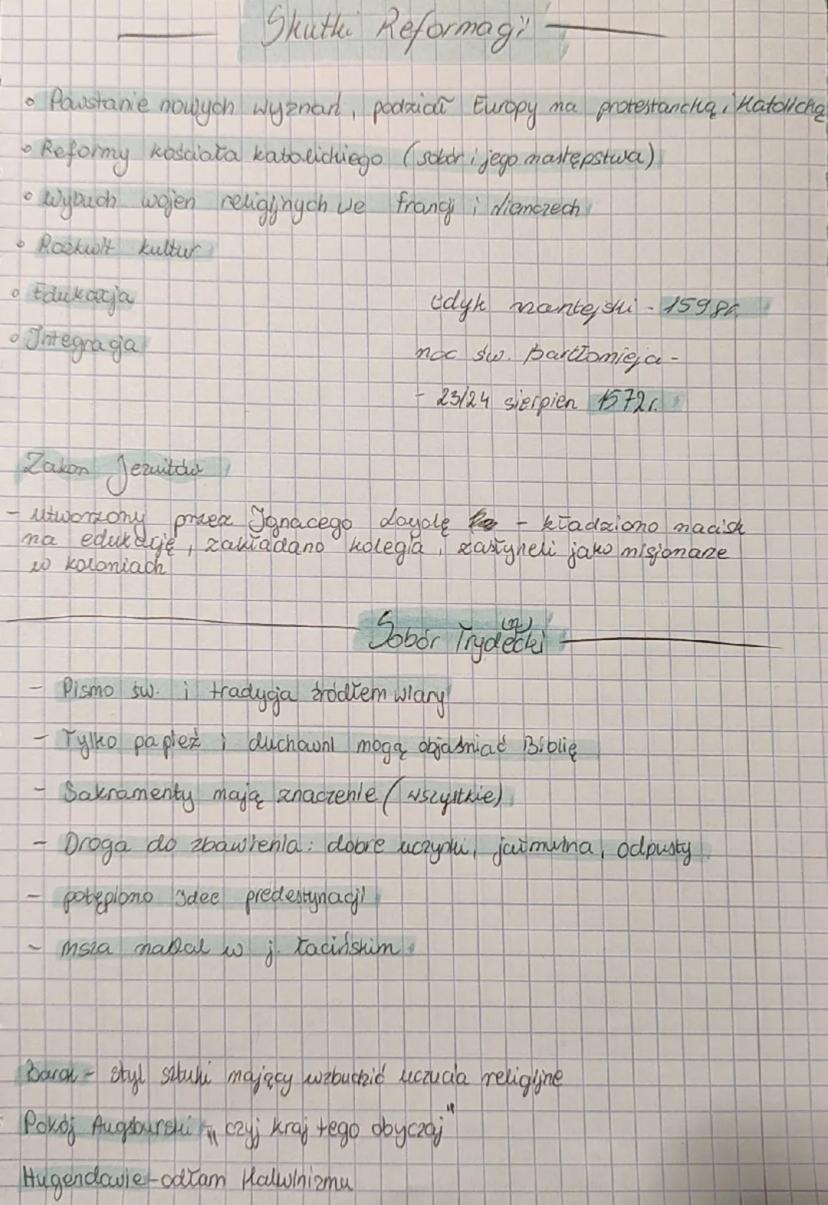 Skutki Reformacji
• Powstanie nowych wyznań, podział Europy na protestancką i Katolicką
• Reformy kościoła katolickiego (sobór i jego następstwa)
• Wybuch wojen religijnych we francji i Niemczech
• Rozkwit kultur
• Edukacja
• Integracja
Edykt nantejski - 1598r.
noc św. Bartłomieja -
- 23/24 sierpień 1572r.
Zakon Jezuitów
- utworzony przez Ignacego Loyolę - kładziono nacisk
na edukację, zakładano kolegia, zasłyneli jako misjonaże
w koloniach
Sobór Trydecki (n)
- Pismo św. i tradycja źródłem wiary
- Tylko papież i duchowni mogą objaśniać Biblię
- Sakramenty mają znaczenie (wszystkie)
- Droga do zbawienia: dobre uczynki, jałmużna, odpusty
- potępiono idee predestynacji
- msza nadal w j. łacińskim
Barok - styl sztuki mający wzbudzić uczucia religijne
Pokój Augsburski „czyj kraj tego obyczaj"
Hugenotowie - odłam Kalwinizmu